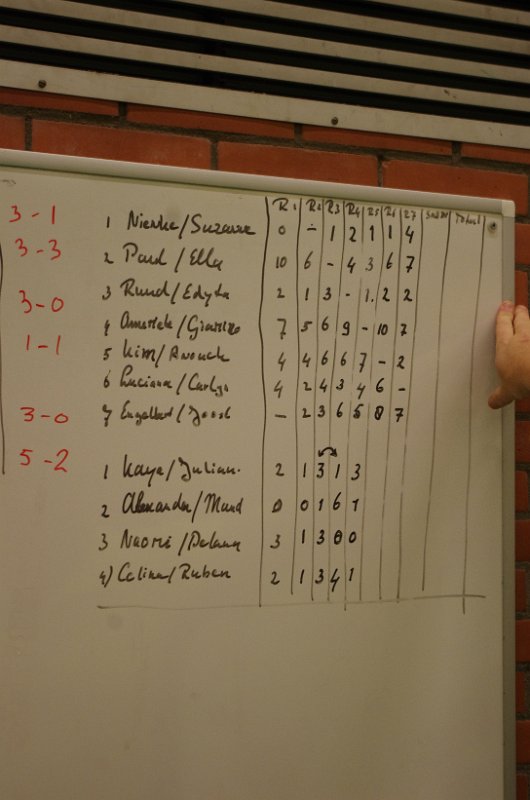 3-1
3-3
3-0
1-1
3-0
5-2
R1 R2 R3 R4 R5 R6 R7 Totaal
1 Nienke/Suzanne 0 - 1 2 1 1 4
2 Paul/Ella 10 6 - 4 3 6 7
3 Ruud/Edyta 2 1 3 - 1. 2 2
4 7 5 6 9 - 10 7
5 Kim/Anouck 4 4 6 6 7 - 2
6 Luciana/ 4 2 4 3 4 6 -
7 Engelbert/Joost - 2 3 6 5 8 7
1 Kaya/Julian 2 1 3 1 3
2 Alexandra/Maud 0 0 1 6 1
3 Naomi/ 3 1 3 0 0
4) Celina/Ruben 2 1 3 4 1